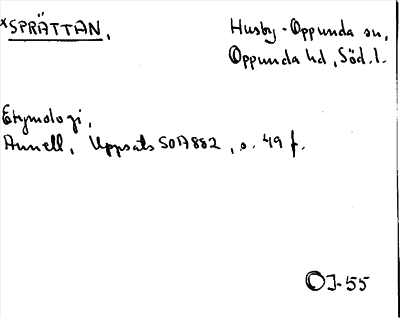 *SPRÄTTAN,
Husby-Oppunda sn,
Oppunda hd, Söd.l.
Etymologi,
Annell, Uppsats SOA882, s. 49 f.
OJ-55